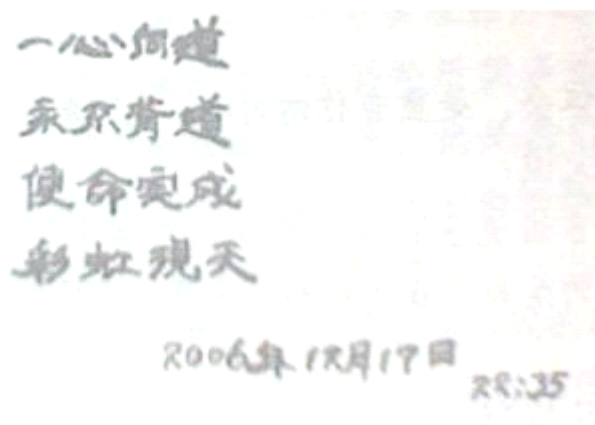 一心向道
永不背道
使命完成
彩虹現天
2006年12月17日
22:35